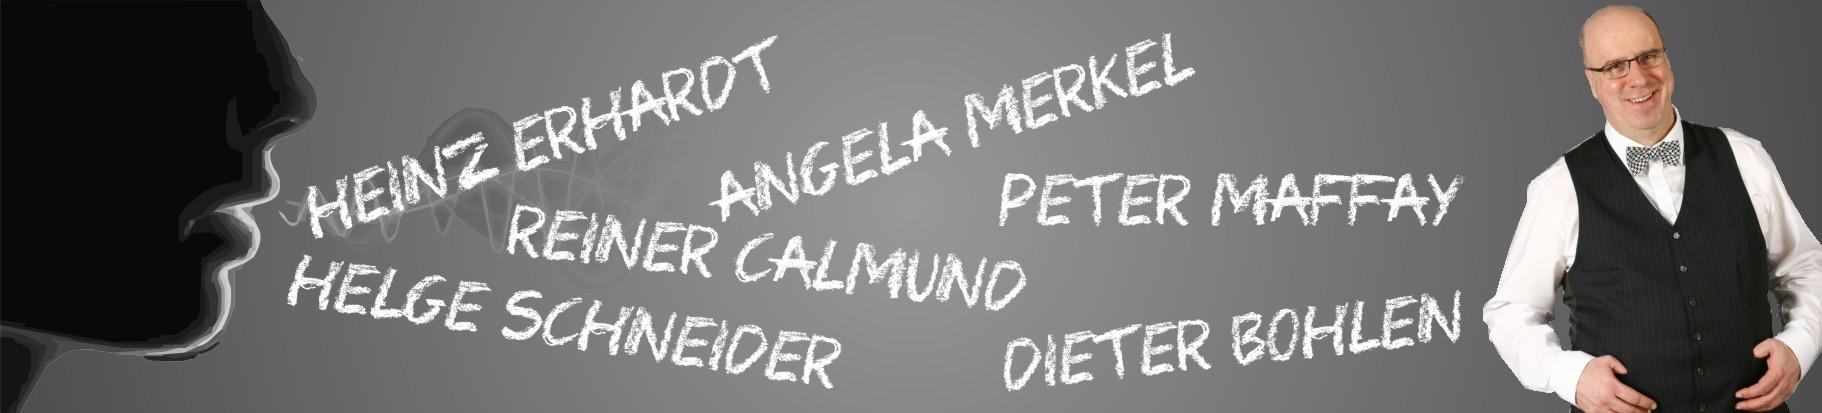 HEINZ ERHARDT
ANGELA MERKEL
PETER MAFFAY
REINER CALMUND
HELGE SCHNEIDER
DIETER BOHLEN